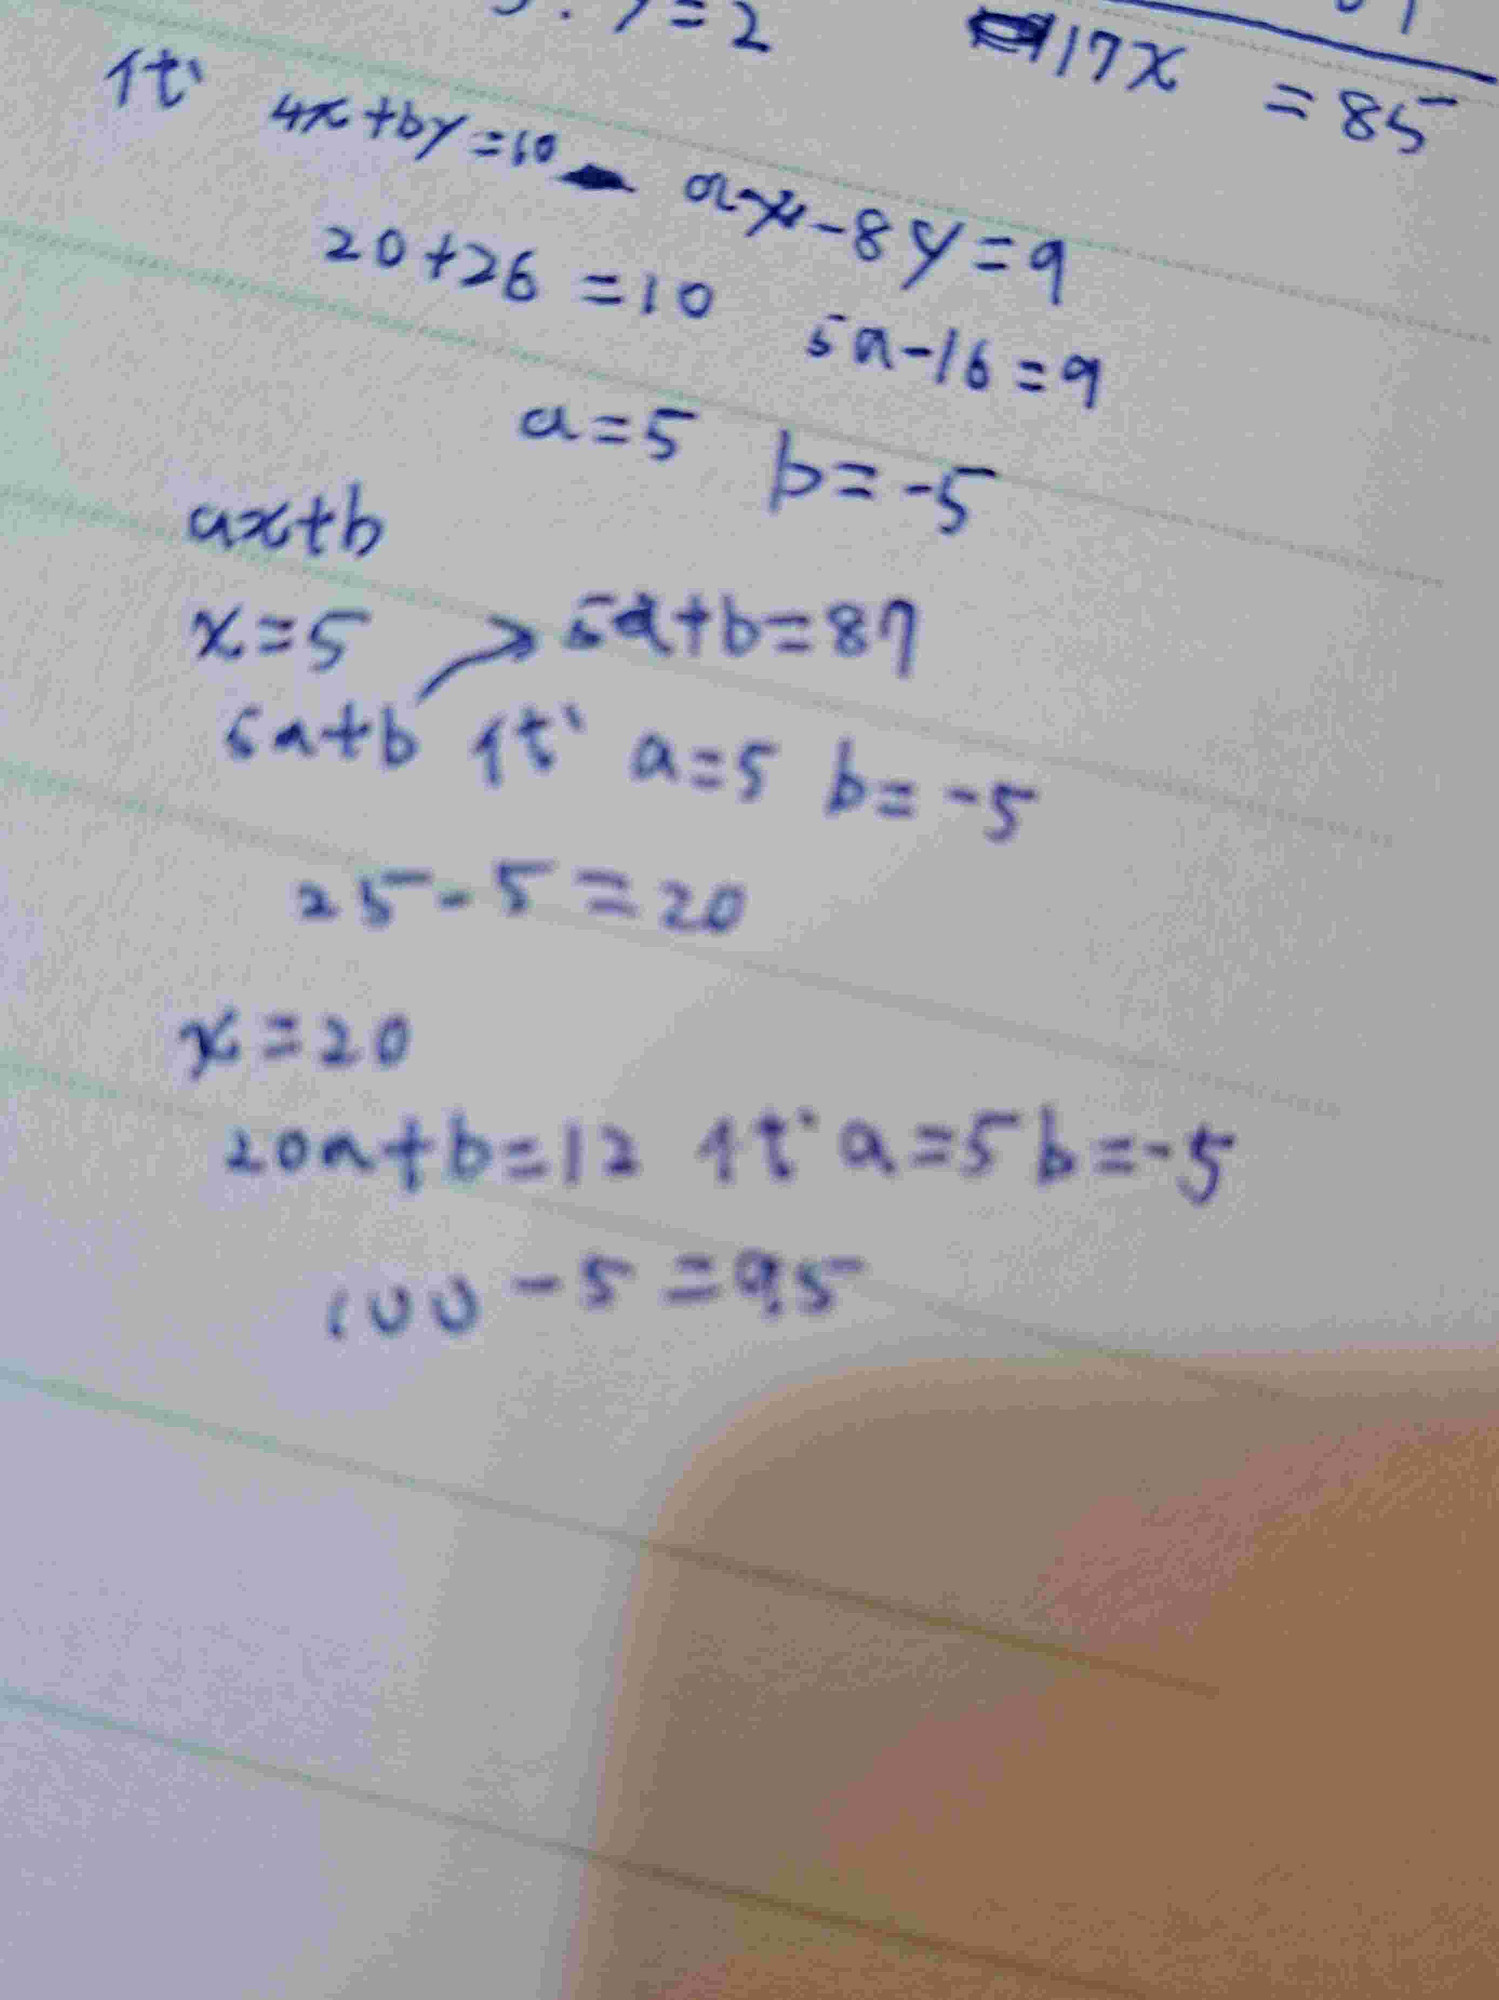 y=2
17x = 85
代 4x+by=10 ax-8y=9
20+2b=10 5a-16=9
a=5 b=-5
ax+b
x=5 → 5a+b=87
5a+b 代 a=5 b=-5
25-5=20
x=20
20a+b=12 代 a=5 b=-5
100-5=95